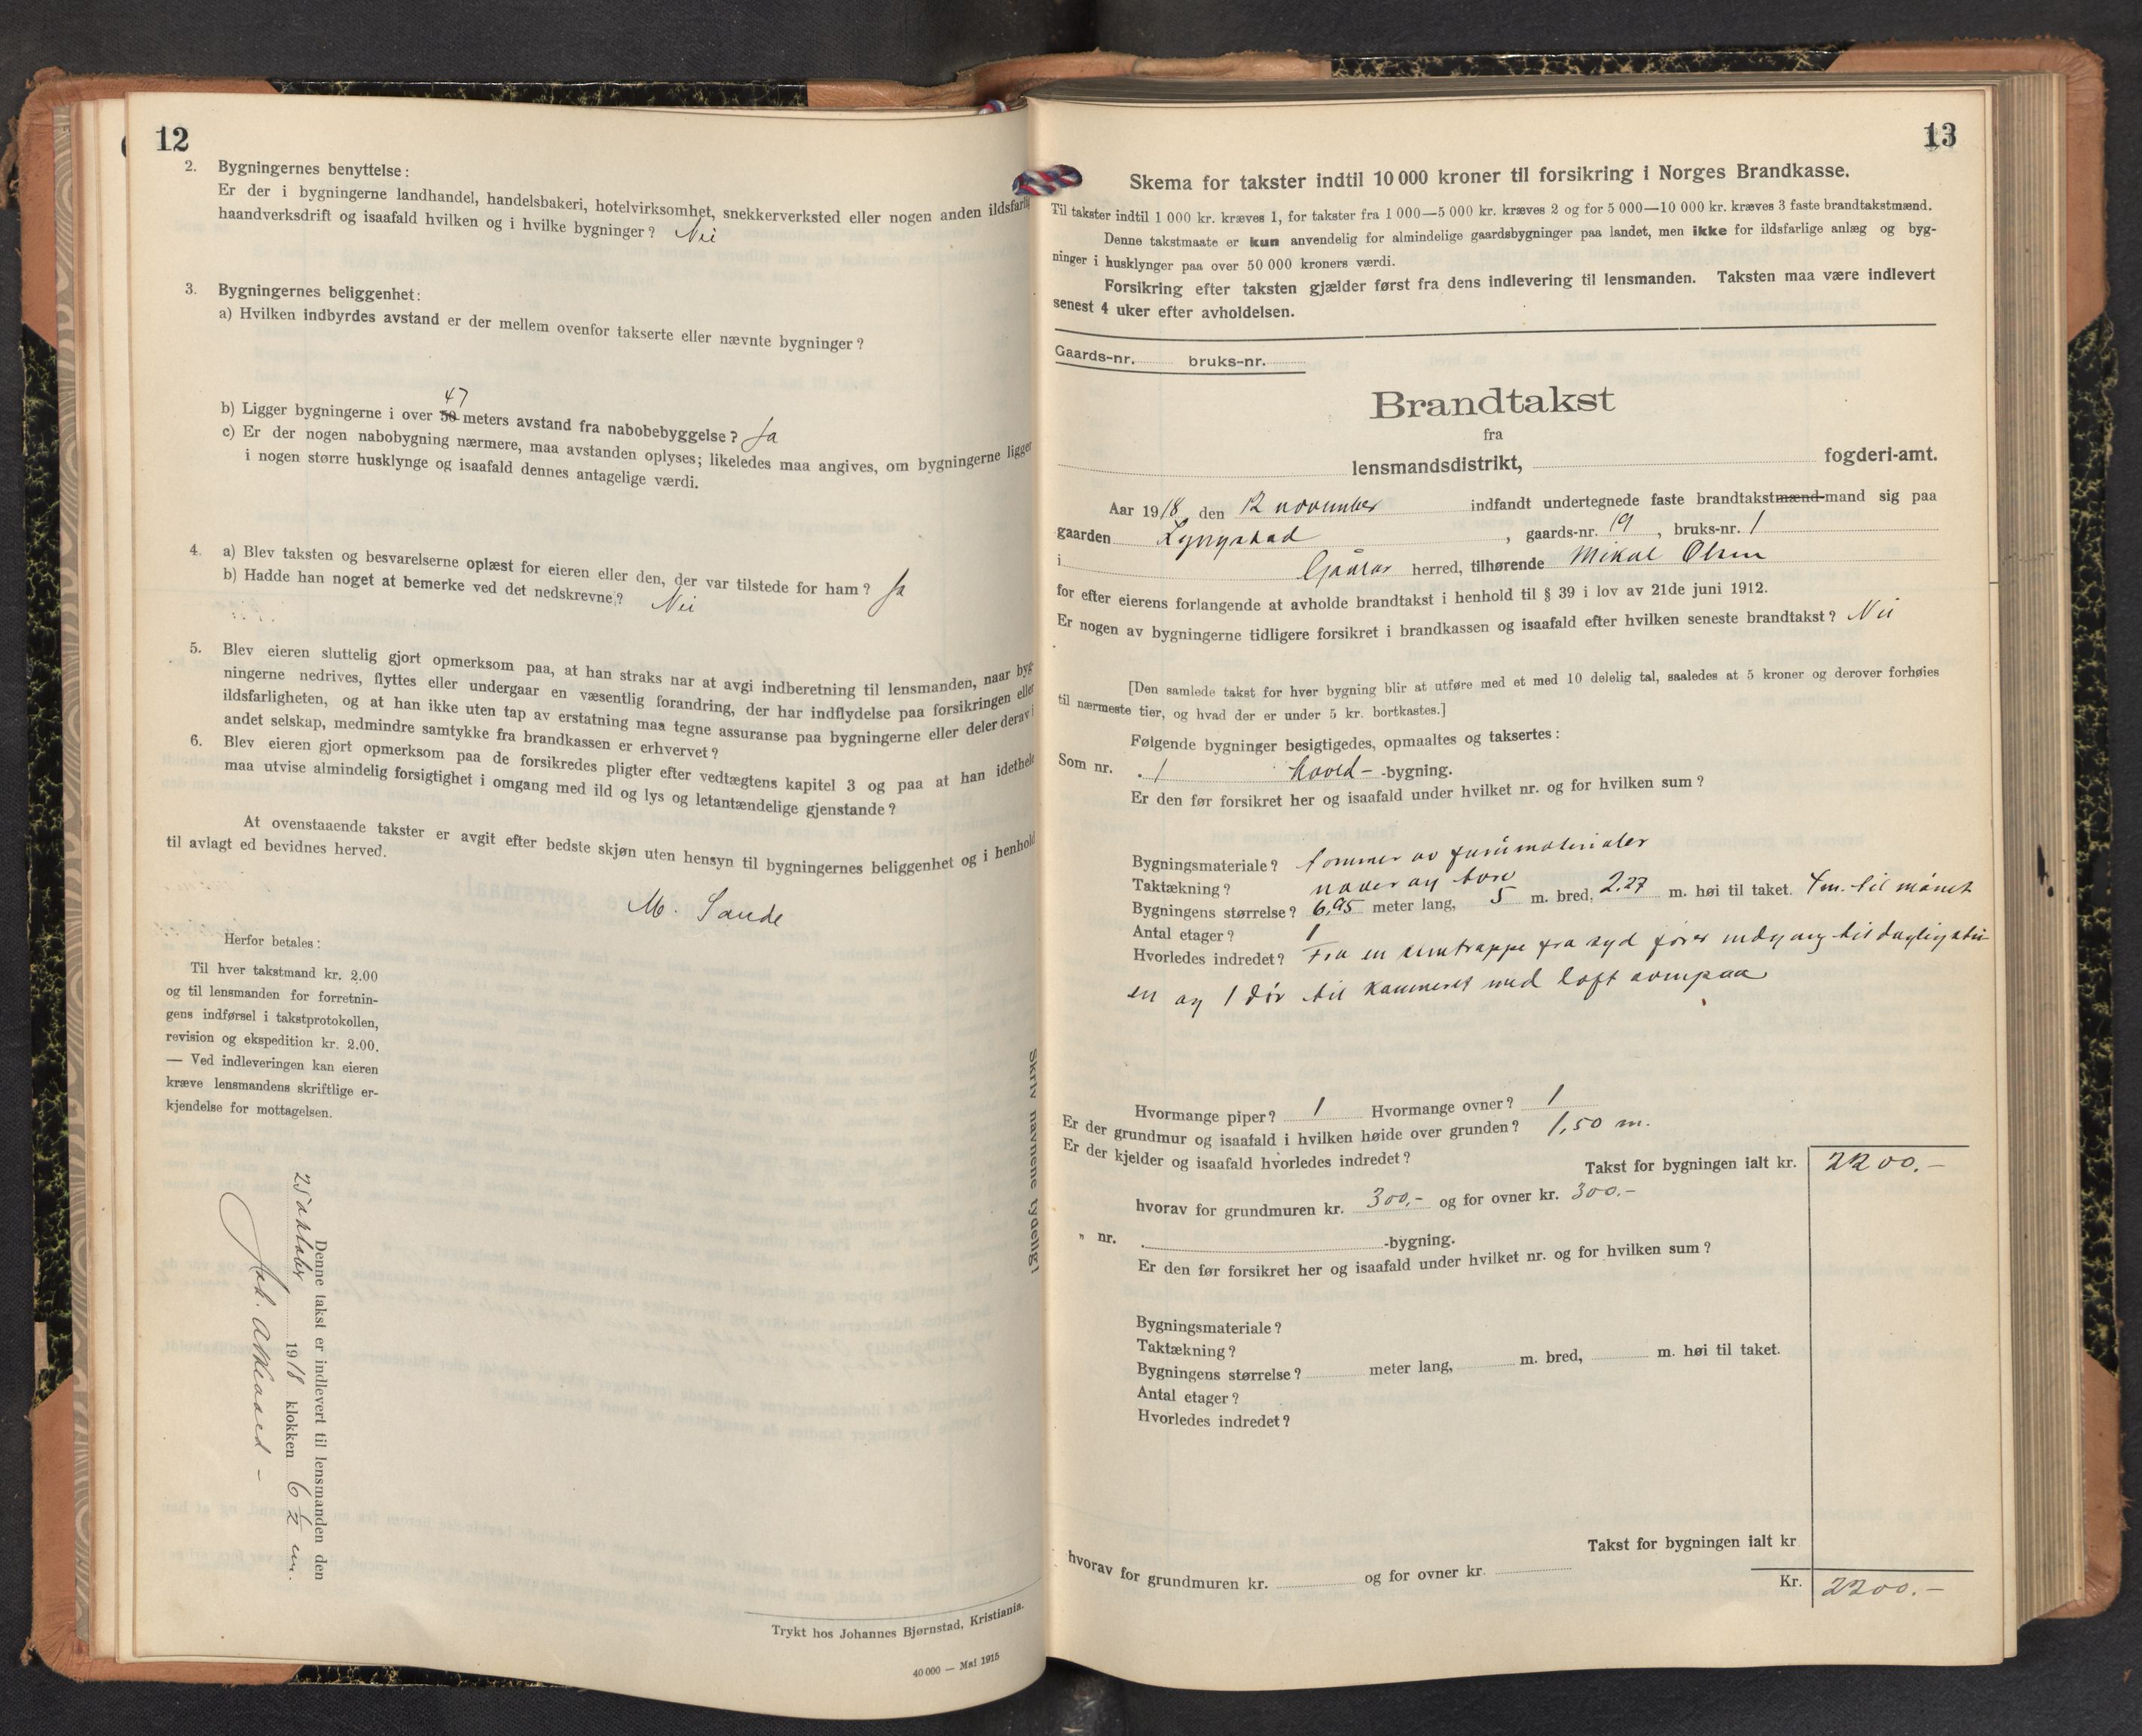 12
2. Bygningernes benyttelse:
Er der i bygningerne landhandel, handelsbakeri, hotelvirksomhet, snekkerverksted eller nogen anden ildsfarlig
haandverksdrift og isaafald hvilken og i hvilke bygninger? Nei
3. Bygningernes beliggenhet:
a) Hvilken indbyrdes avstand er der mellem ovenfor takserte eller nævnte bygninger?
47
b) Ligger bygningerne i over 50 meters avstand fra nabobebyggelse? Ja
c) Er der nogen nabobygning nærmere, maa avstanden oplyses; likeledes maa angives, om bygningerne ligger
i nogen større husklynge og isaafald dennes antagelige værdi.
4. a) Blev taksten og besvarelserne oplæst for eieren eller den, der var tilstede for ham? Ja
b) Hadde han noget at bemerke ved det nedskrevne? Nei
5. Blev eieren sluttelig gjort opmerksom paa, at han straks har at avgi indberetning til lensmanden, naar byg-
ningerne nedrives, flyttes eller undergaar en væsentlig forandring, der har indflydelse paa forsikringen eller
ildsfarligheten, og at han ikke uten tap av erstatning maa tegne assuranse paa bygningerne eller deler derav i
andet selskap, medmindre samtykke fra brandkassen er erhvervet?
6. Blev eieren gjort opmerksom paa de forsikredes pligter efter vedtægtens kapitel 3 og paa at han idethele
maa utvise almindelig forsigtighet i omgang med ild og lys og letantændelige gjenstande?
At ovenstaaende takster er avgit efter bedste skjøn uten hensyn til bygningernes beliggenhet og i henhold
til avlagt ed bevidnes herved.
M. Sande
Herfor betales:
Til hver takstmand kr. 2.00
og til lensmanden for forretnin-
gens indførsel i takstprotokollen,
revision og ekspedition kr. 2.00.
— Ved indleveringen kan eieren
kræve lensmandens skriftlige er-
kjendelse for mottagelsen.
Denne takst er indlevert til lensmanden den
25 oktober 1918 klokken 6 1/2 em.
Skriv navnene tydelig!
Trykt hos Johannes Bjørnstad, Kristiania.
40 000 — Mai 1915
13
Skema for takster indtil 10 000 kroner til forsikring i Norges Brandkasse.
Til takster indtil 1 000 kr. kræves 1, for takster fra 1 000—5 000 kr. kræves 2 og for 5 000—10 000 kr. kræves 3 faste brandtakstmænd.
Denne takstmaate er kun anvendelig for almindelige gaardsbygninger paa landet, men ikke for ildsfarlige anlæg og byg-
ninger i husklynger paa over 50 000 kroners værdi.
Forsikring efter taksten gjælder først fra dens indlevering til lensmanden. Taksten maa være indlevert
senest 4 uker efter avholdelsen.
Gaards-nr. bruks-nr.
Brandtakst
fra
lensmandsdistrikt, fogderi-amt.
Aar 1918 den 12 november indfandt undertegnede faste brandtakstmænd-mand sig paa
gaarden Lyngstad, gaards-nr. 19, bruks-nr. 1
i Gaular herred, tilhørende Mikal Olsen
for efter eierens forlangende at avholde brandtakst i henhold til § 39 i lov av 21de juni 1912.
Er nogen av bygningerne tidligere forsikret i brandkassen og isaafald efter hvilken seneste brandtakst? Nei
[Den samlede takst for hver bygning blir at utføre med et med 10 delelig tal, saaledes at 5 kroner og derover forhøies
til nærmeste tier, og hvad der er under 5 kr. bortkastes.]
Følgende bygninger besigtigedes, opmaaltes og taksertes:
Som nr. 1 hoved- -bygning.
Er den før forsikret her og isaafald under hvilket nr. og for hvilken sum?
Bygningsmateriale? tømmer av furumaterialer
Taktækning? never og torv
Bygningens størrelse? 6,95 meter lang, 5 m. bred, 2,27 m. høi til taket. 4 m. til mønet
Antal etager? 1
Hvorledes indredet? Fra en stentrappe fra syd fører indgang til dagligstu-
en og 1 dør til kammeret med loft ovenpaa
Hvormange piper? 1 Hvormange ovner? 1
Er der grundmur og isaafald i hvilken høide over grunden? 1,50 m.
Er der kjelder og isaafald hvorledes indredet?
Takst for bygningen ialt kr. 2200.-
hvorav for grundmuren kr. 300,- og for ovner kr. 300.-
„ nr. -bygning.
Er den før forsikret her og isaafald under hvilket nr. og for hvilken sum?
Bygningsmateriale?
Taktækning?
Bygningens størrelse? meter lang, m. bred, m. høi til taket.
Antal etager?
Hvorledes indredet?
Takst for bygningen ialt kr
hvorav for grundmuren kr. og for ovner kr.
Kr. 2200.-